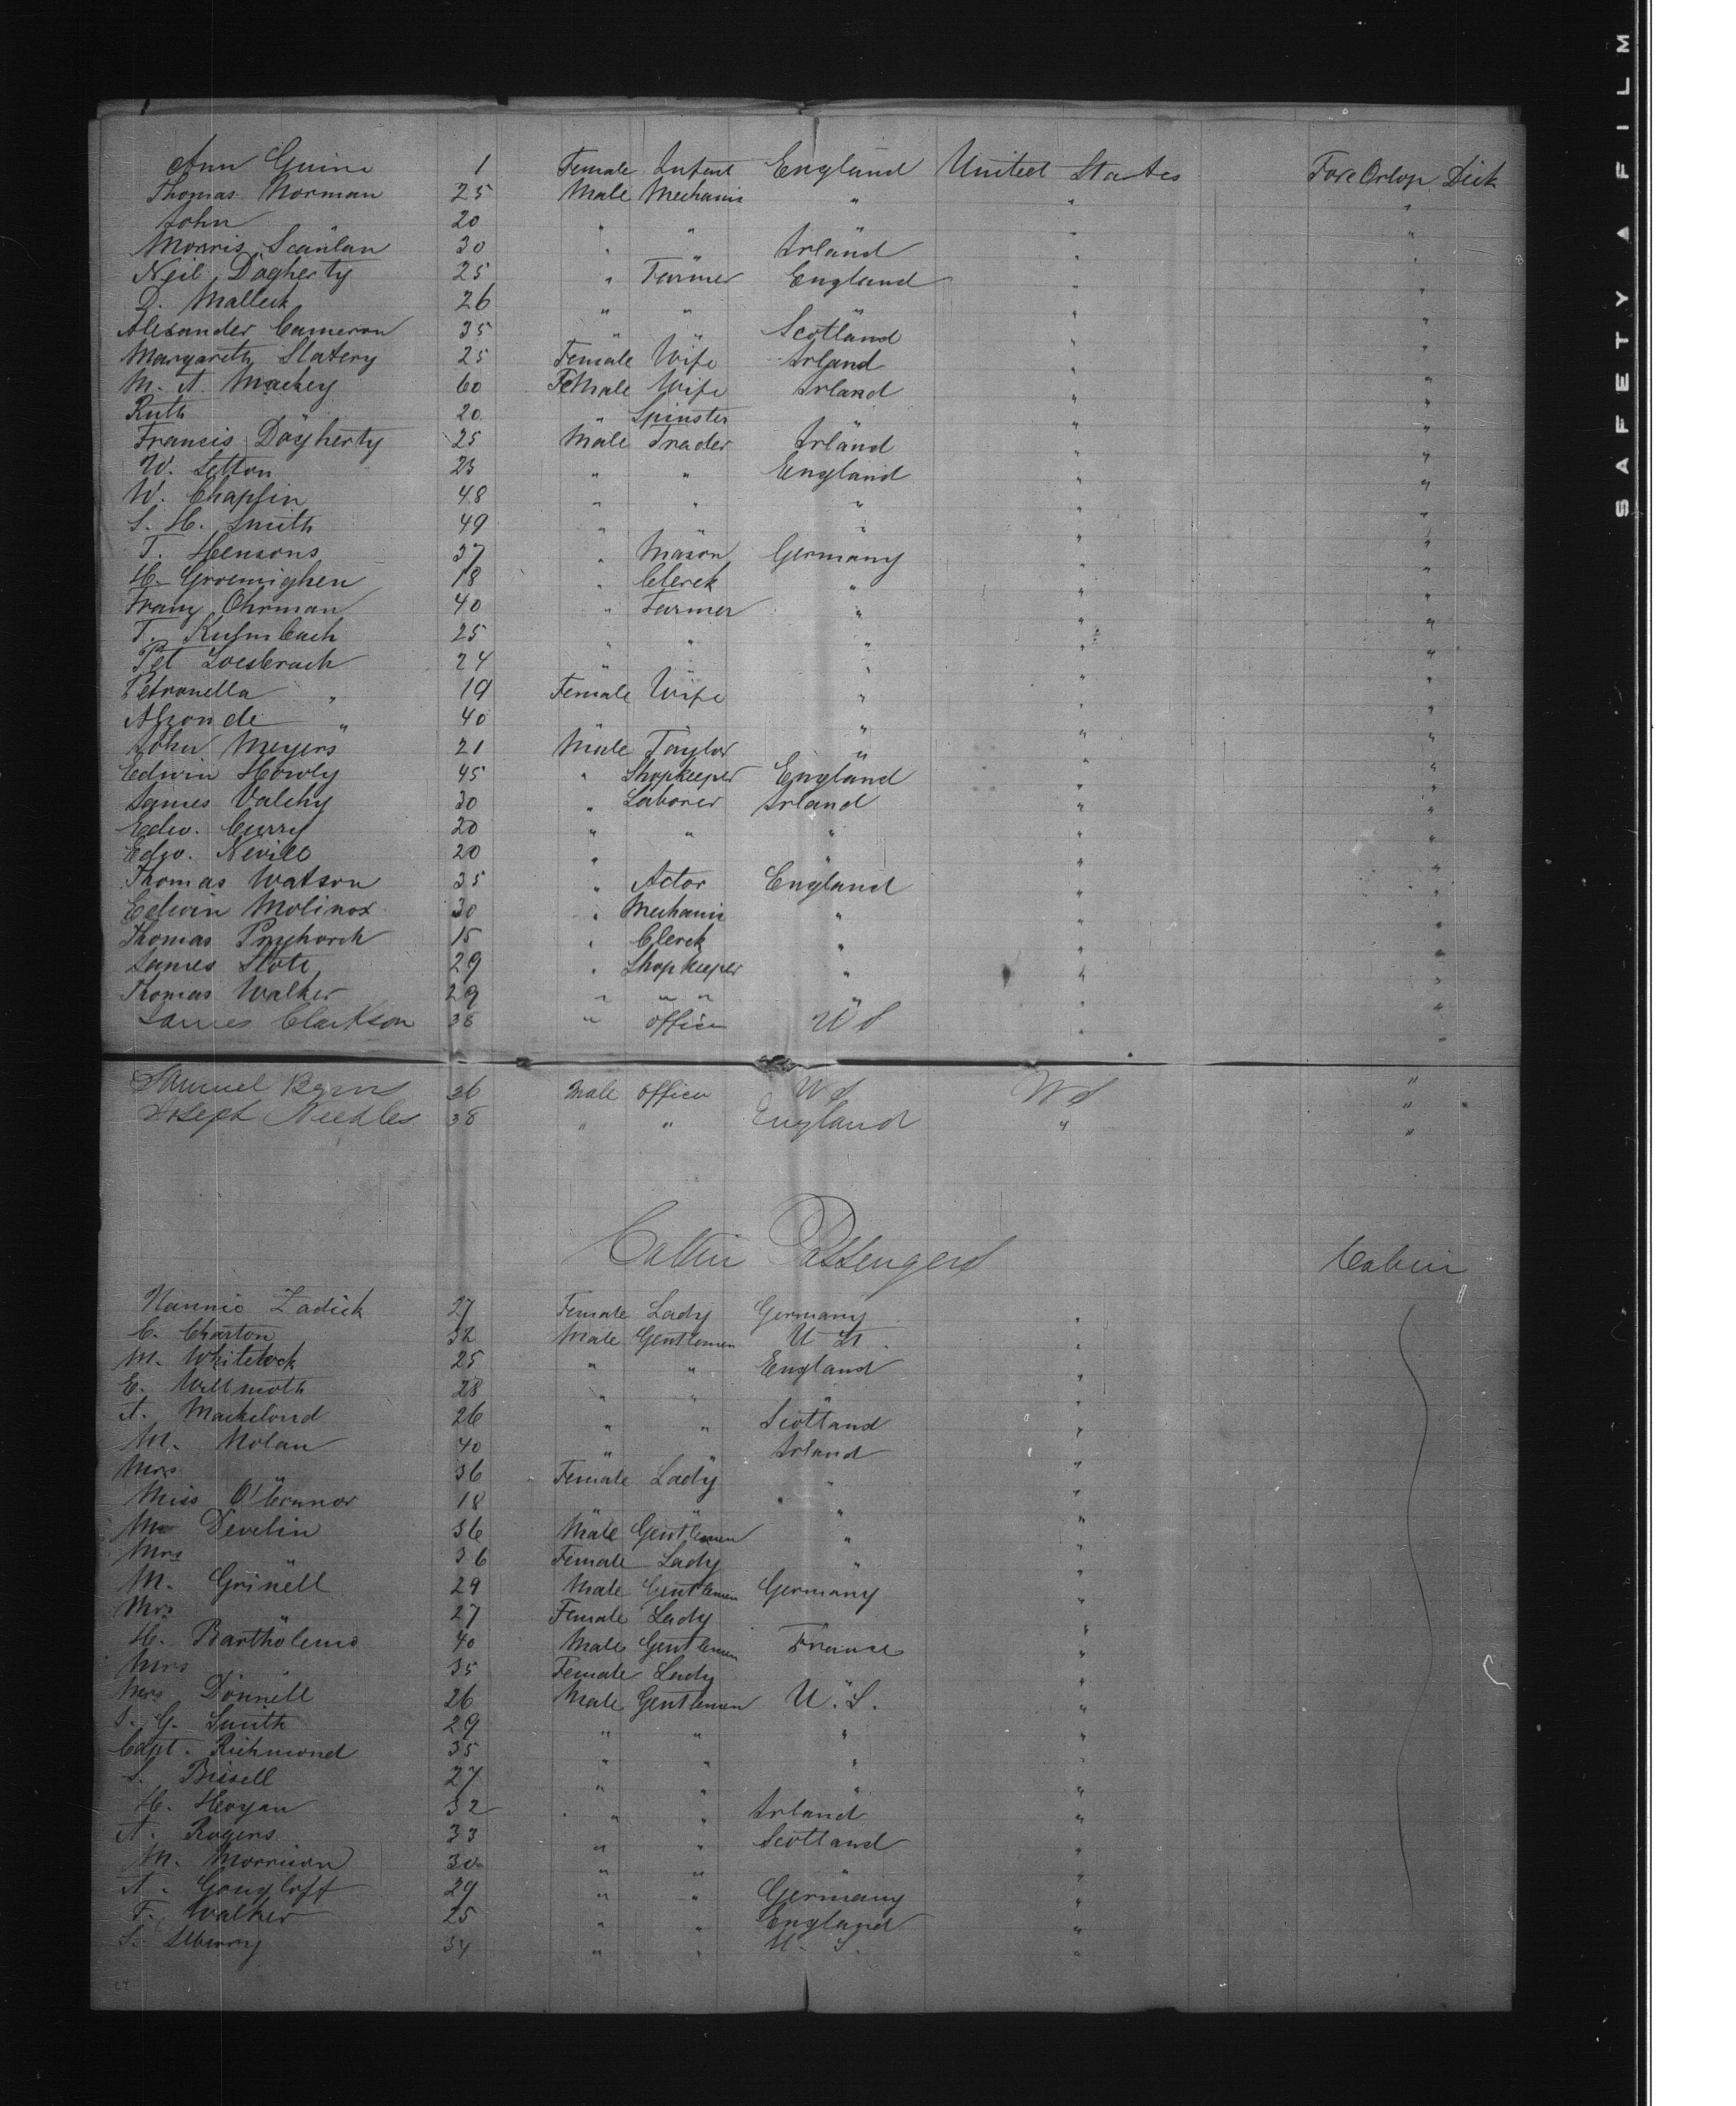 Ann Guine 1 Female Infant England United States Fore Orlop Deck
Thomas Norman 25 Male Mechanic " " "
John 20 " " " "
Morris Scanlan 30 " Irland " "
Neil Dogherty 25 " Farmer England " "
D. Malleck 26 " " " "
Alexander Cameron 35 " Scotland " "
Margareth Slatery 25 Female Wife Irland " "
M. A. Mackey 60 Female Wife Irland " "
Ruth 20 " Spinster " "
Francis Dogherty 25 Male Trader Irland " "
W. Setton 23 " " England " "
W. Chaplin 48 " " " " "
S. H. Smith 49 " " " "
T. Hensons 37 " Mason Germany " "
H. Groenighen 18 " Clerck " " "
Franz Ohrman 40 " Farmer " " "
T. 25 " " " " "
Pet Loesbrach 24 " " " "
Petronella " 19 Female Wife " " "
" 40 " " "
John Meyers 21 Male Taylor " " "
Edwin Howly 45 " Shopkeeper England " "
James Valehy 30 " Laborer Irland " "
Edw. Curry 20 " " " " "
Edw. Nevill 20 " " "
Thomas Watson 35 " Actor England " "
Edwin Molinox 30 " Mechanic " " "
Thomas 15 " Clerck " " "
James Stote 29 " Shopkeeper " " "
Thomas Walker 29 " " " " "
James Clarkson 38 " officer U S " "
Samuel Byrns 36 Male officer U S U S "
Joseph Needles 38 " " England " "
Cabin Passengers Cabin
Nannie Zadick 27 Female Lady Germany "
C. Charton 32 Male Gentlemen U St. "
M. Whitelock 25 " " England "
E. Willmoth 28 " " "
A. Mackelond 26 " " Scotland "
M. Nolan 40 " Irland "
Mrs 36 Female Lady " "
Miss O'Connor 18 " "
Mr Develin 36 Male Gentlemen " "
Mrs 36 Female Lady " "
M. Grinell 29 Male Gentlemen Germany "
Mrs 27 Female Lady "
H. Bartholemo 40 Male Gentlemen France "
Mrs 35 Female Lady "
Mrs Donnell 26 Male Gentlemen U. S. "
G. Smith 29 " " " "
Capt. Richmond 35 " " " "
S. Bissell 27 " " " "
H. Hogan 32 " " Irland "
A. Rogers 33 " " Scotland "
M. Morrison 30 " " " "
A. Gongloff 29 " " Germany "
F. Walker 25 " " England "
S. 34 " " U. S. "
SAFETY A FILM